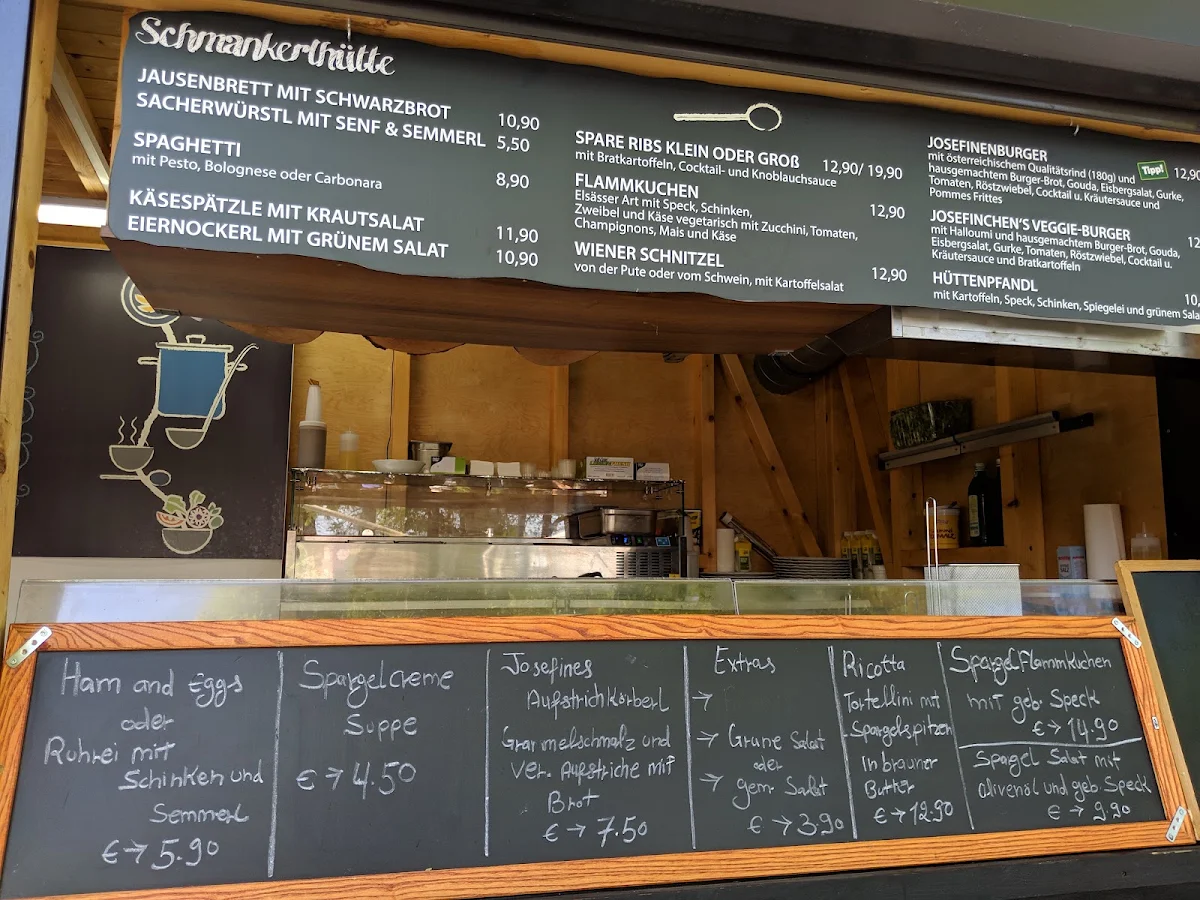 Schmankerlhütte
JAUSENBRETT MIT SCHWARZBROT 10,90
SACHERWÜRSTL MIT SENF & SEMMERL 5,50
SPAGHETTI
mit Pesto, Bolognese oder Carbonara 8,90
KÄSESPÄTZLE MIT KRAUTSALAT 11,90
EIERNOCKERL MIT GRÜNEM SALAT 10,90
SPARE RIBS KLEIN ODER GROß 12,90/ 19,90
mit Bratkartoffeln, Cocktail- und Knoblauchsauce
FLAMMKUCHEN
Elsässer Art mit Speck, Schinken, 12,90
Zweibel und Käse vegetarisch mit Zucchini, Tomaten,
Champignons, Mais und Käse
WIENER SCHNITZEL
von der Pute oder vom Schwein, mit Kartoffelsalat 12,90
JOSEFINENBURGER
mit österreichischem Qualitätsrind (180g) und Tipp! 12,90
hausgemachtem Burger-Brot, Gouda, Eisbergsalat, Gurke,
Tomaten, Röstzwiebel, Cocktail u. Kräutersauce und
Pommes Frittes
JOSEFINCHEN'S VEGGIE-BURGER
mit Halloumi und hausgemachtem Burger-Brot, Gouda, 12
Eisbergsalat, Gurke, Tomaten, Röstzwiebel, Cocktail u.
Kräutersauce und Bratkartoffeln
HÜTTENPFANDL
mit Kartoffeln, Speck, Schinken, Spiegelei und grünem Sala 10,
Ham and Eggs
oder
Rührei mit
Schinken und
Semmerl
€ → 5.90
Spargelcreme
Suppe
€ → 4.50
Josefines
Aufstrichkörberl
Grammelschmalz und
ver. Aufstriche mit
Brot
€ → 7.50
Extras
→
→ Grüne Salat
oder
→ gem Salat
€ → 3.90
Ricotta
Tortellini mit
Spargelspitzen
in brauner
Butter
€ → 12.90
Spargelflammkuchen
mit geb. Speck
€ → 14.90
Spagel Salat mit
Olivenöl und geb. Speck
€ → 9.90